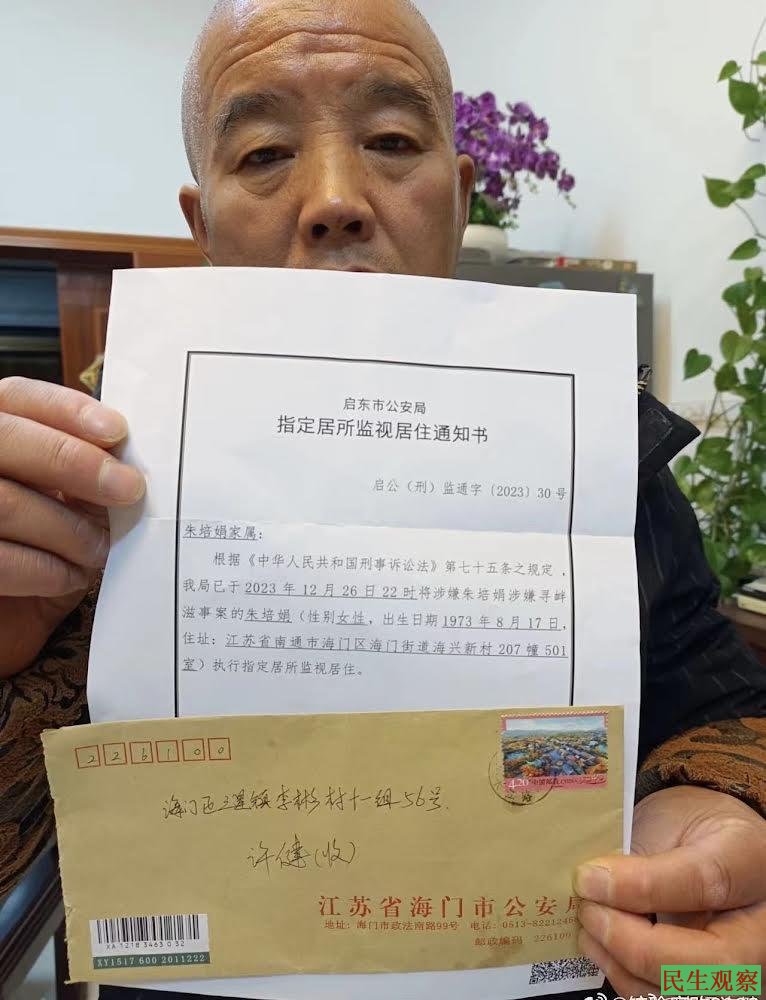 启东市公安局
指定居所监视居住通知书
启公（刑）监通字〔2023〕30号
朱培娟家属：
根据《中华人民共和国刑事诉讼法》第七十五条之规定，
我局已于2023年12月26日22时将涉嫌朱培娟涉嫌寻衅
滋事案的朱培娟（性别女性，出生日期1973年8月17日，
住址：江苏省南通市海门区海门街道海兴新村207幢501
室）执行指定居所监视居住。
226100
4.20
中国邮政 CHINA
海门区三星镇李彬村十一组56号
许健（收）
江苏省海门市公安局
地址：海门市政法南路99号 电话：0513-8221246
邮政编码 226100
XA 1218 3463 0 32
XY1517 600 2011222
民生观察